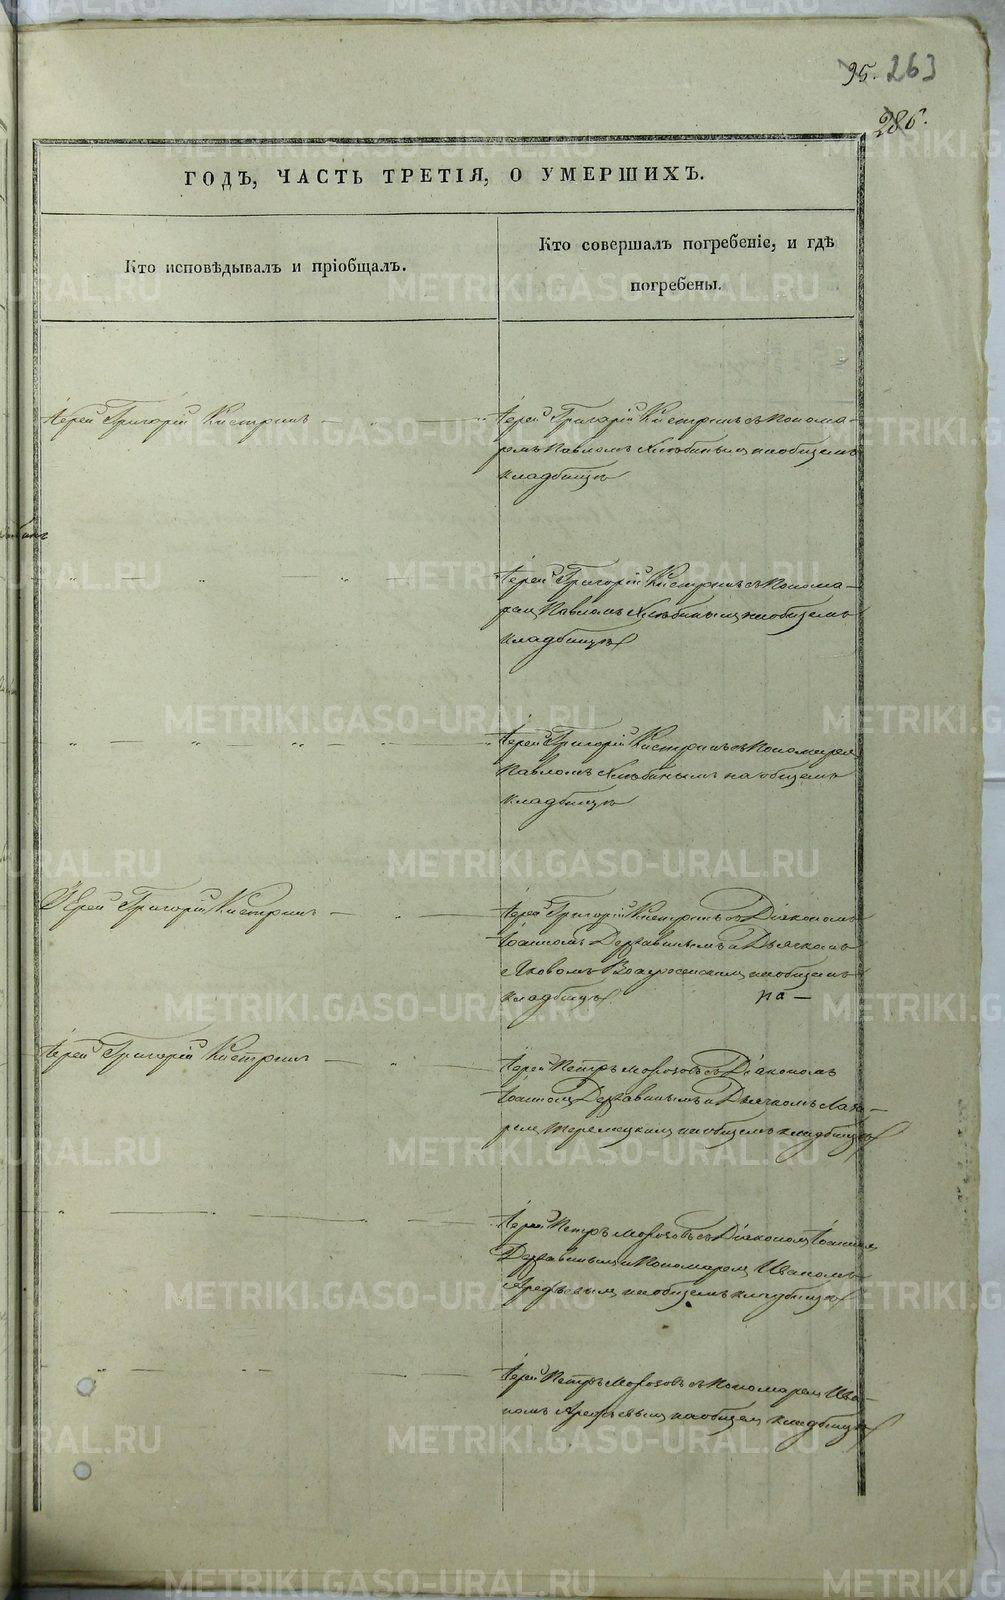 95. 263
286.
ГОДЪ, ЧАСТЬ ТРЕТІЯ, О УМЕРШИХЪ.
Кто исповѣдывалъ и пріобщалъ.
Кто совершалъ погребеніе, и гдѣ
погребены.
Іерей Григорій
Іерей Григорій съ Понома-
ремъ Павломъ Хлѣбинымъ на общемъ
кладбищѣ
Іерей Григорій съ Понома-
ремъ Павломъ Хлѣбинымъ на общемъ
кладбищѣ
Іерей Григорій съ Пономаремъ
Павломъ Хлѣбинымъ на общемъ
кладбищѣ
Іерей Григорій
Іерей Григорій съ Діакономъ
Іоанномъ Державинымъ и Дьячкомъ
Яковомъ на общемъ
кладбищѣ на —
Іерей Григорій
Іерей Петръ Морозовъ съ Діакономъ
Іоанномъ Державинымъ и Дьячкомъ Лаза-
ремъ на общемъ кладбищѣ
Іерей Петръ Морозовъ съ Діакономъ Іоанномъ
Державинымъ и Пономаремъ Иваномъ
Арефьевымъ на общемъ кладбищѣ
Іерей Петръ Морозовъ съ Пономаремъ Ива-
номъ Арефьевымъ на общемъ кладбищѣ
METRIKI.GASO-URAL.RU